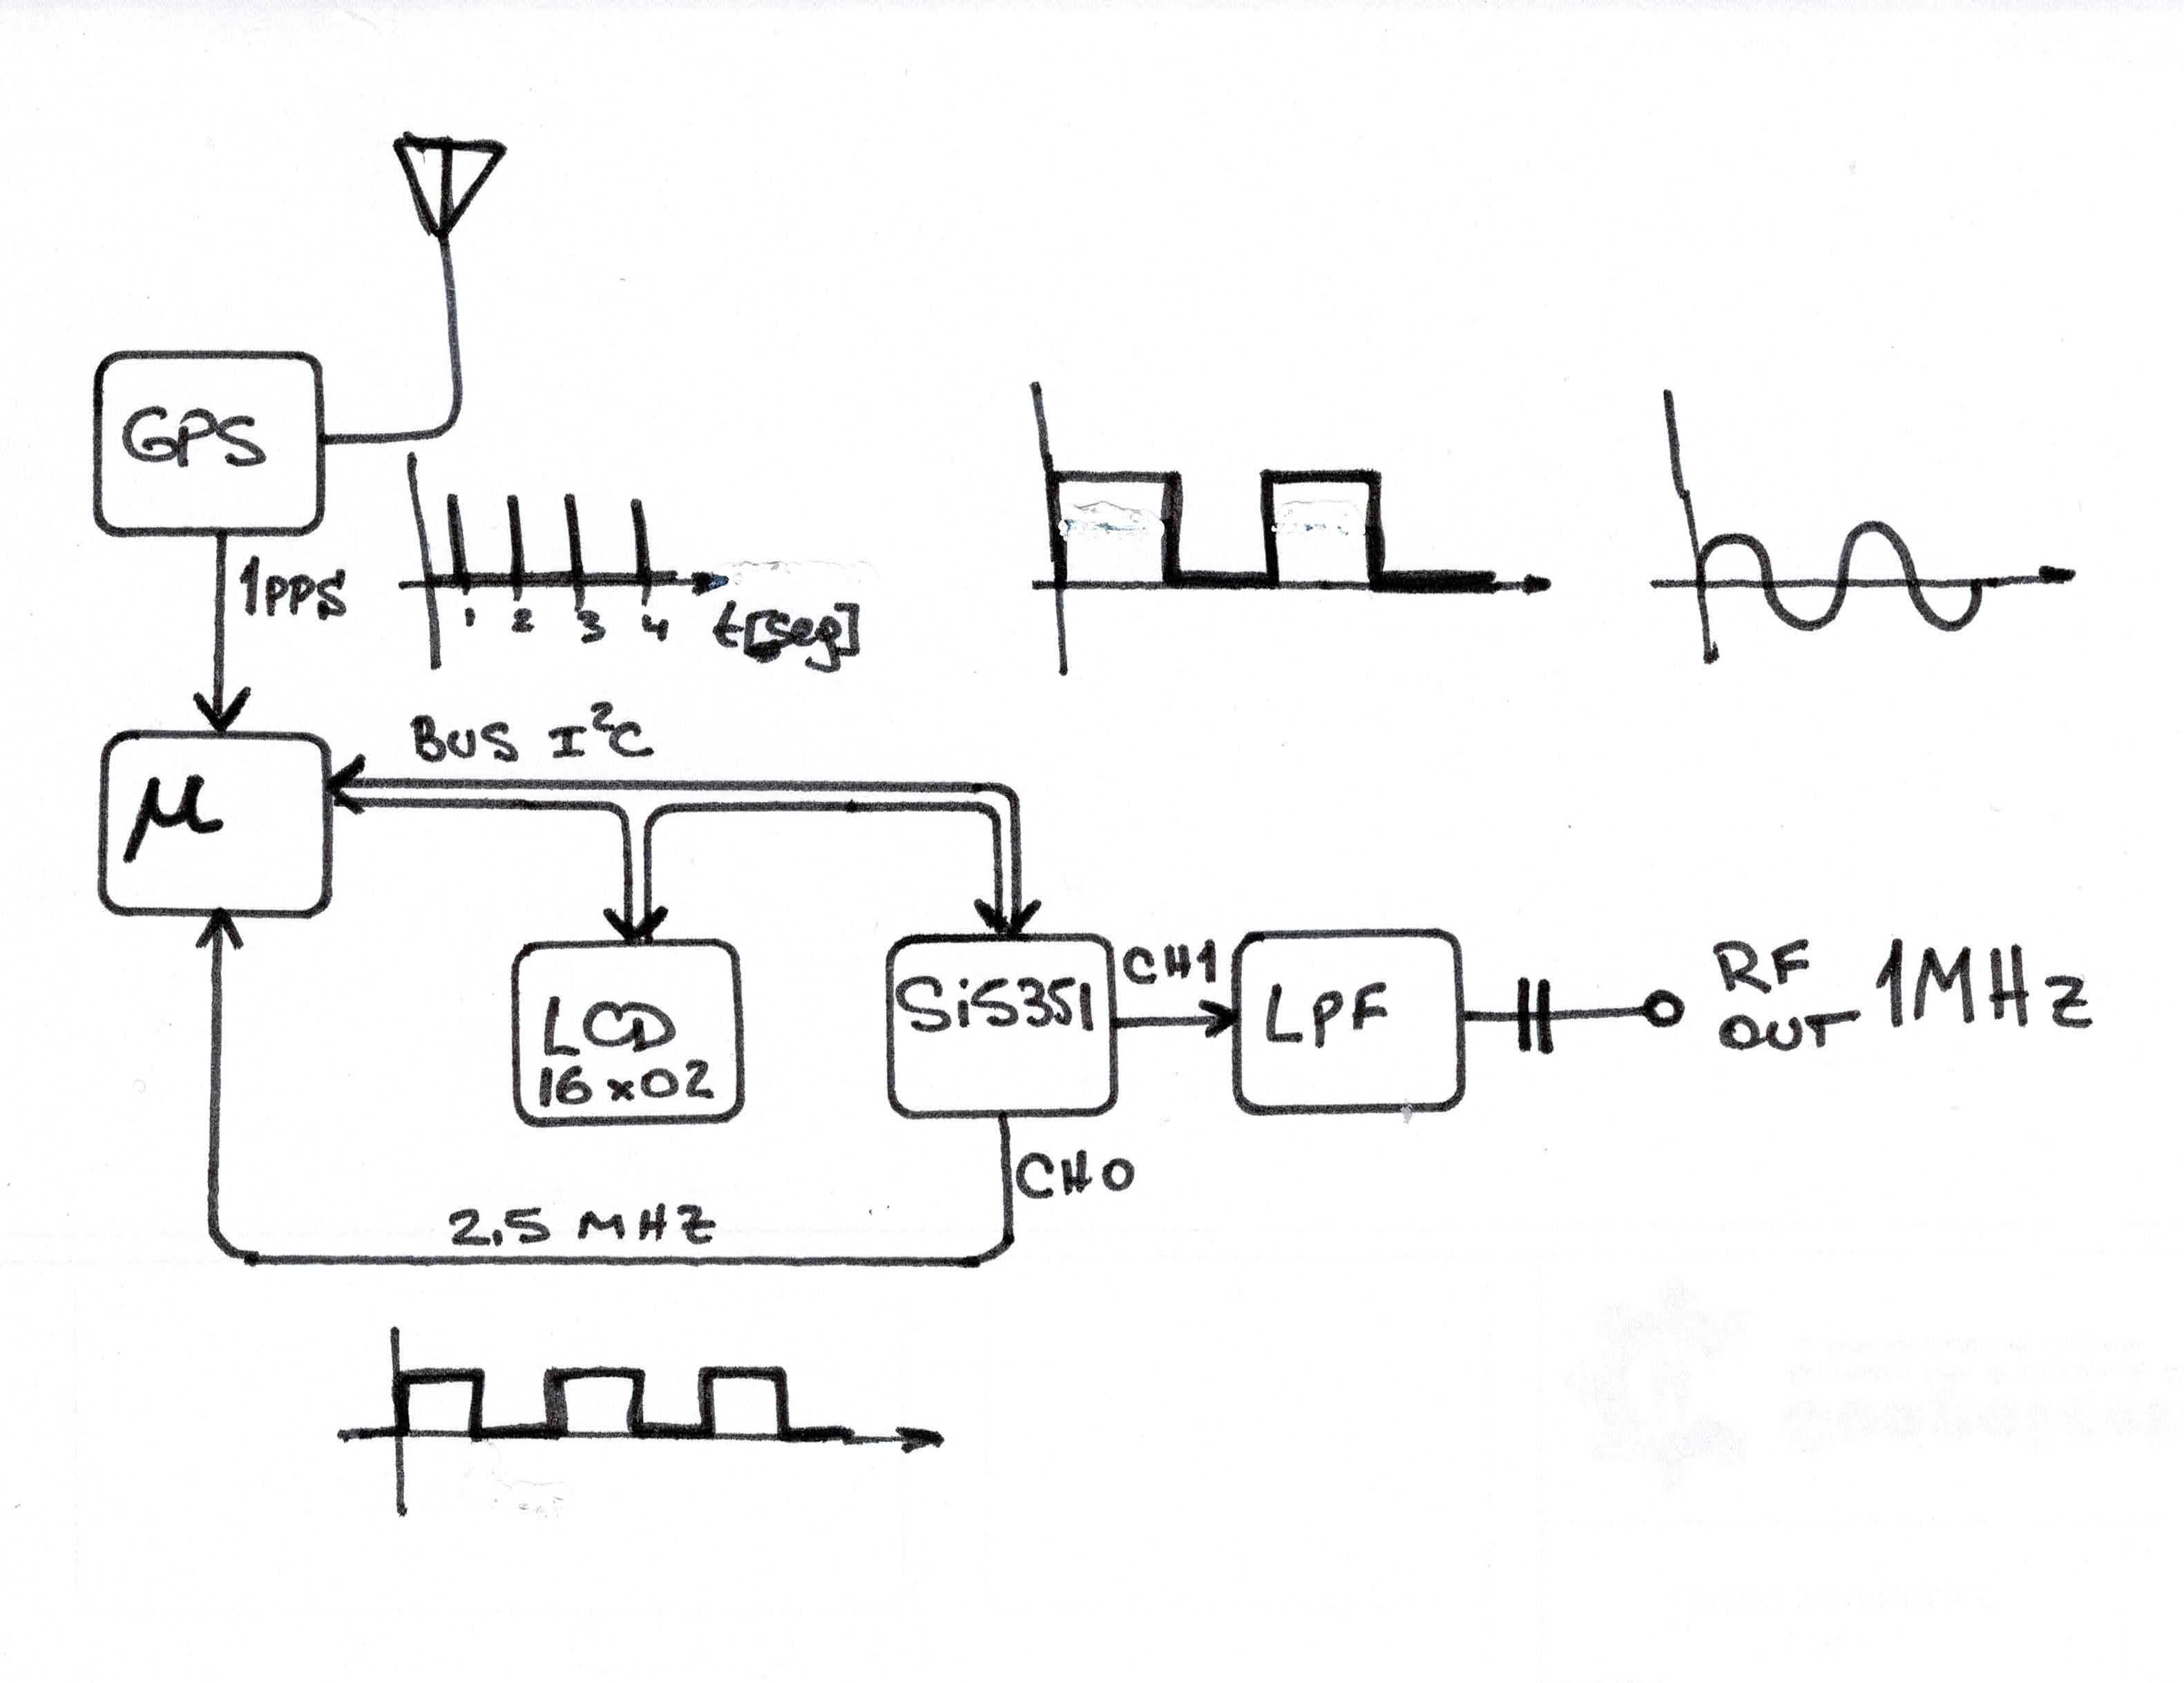 GPS
1PPS
1 2 3 4 t[seg]
BUS I²C
µ
LCD
16x02
Si5351
CH1
LPF
RF
OUT
1MHz
CH0
2.5 MHZ